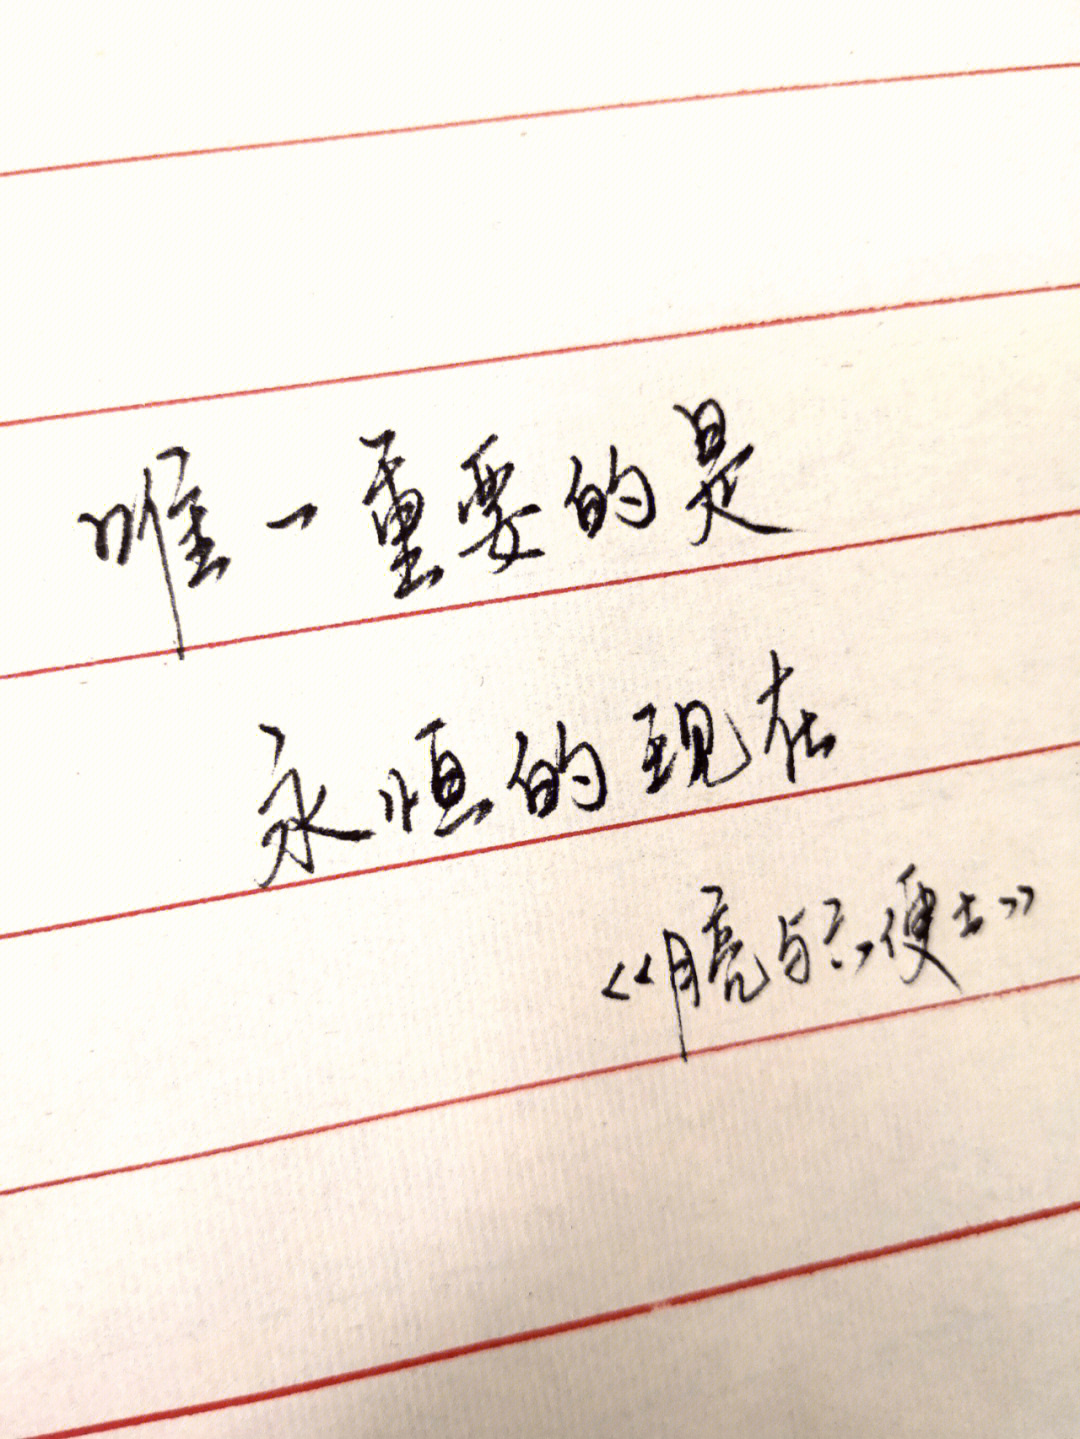 唯一重要的是
永恒的现在
《月亮与六便士》